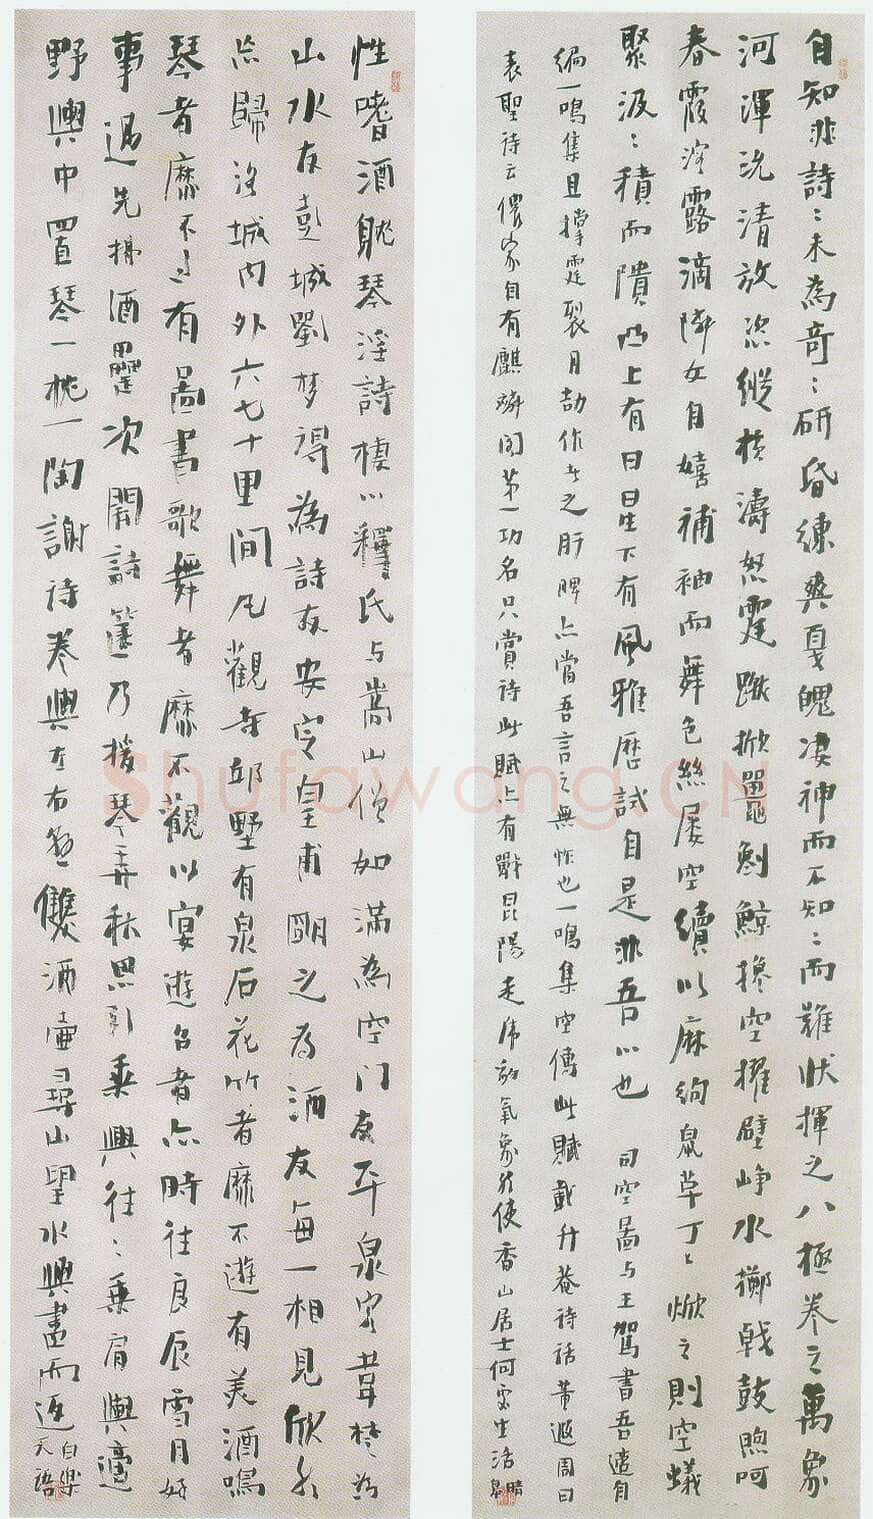 自知非詩〻未為奇〻研昏練爽戛魄淒神而不知〻而難狀揮之八極卷之萬象
河渾沇清放恣縱橫濤怒霆蹴掀鼇倒鯨攙空擢壁崢水擲戟鼓煦呵
春霞溶露滴隣女自嬉補袖而舞色絲屢空續以麻絢鼠革丁〻焮之則空蟻
聚汲〻積而隤凸上有日星下有風雅歷試自是非吾心也 司空圖与王駕書吾適自
編一鳴集且撐霆裂月劼作者之肝脾亦當吾言之無怍也一鳴集空傳此賦載升菴詩話董遐周曰
表聖詩云儂家自有麒麟閣第一功名只賞詩此賦亦有戰昆陽走虎
氣象
使香山居士何處生活
性嗜酒耽琴淫詩棲心釋氏与嵩山僧如滿為空門友平泉客韋楚為
山水友彭城劉夢得為詩友安定皇甫朗之為酒友每一相見欣然
忘歸洛城內外六七十里間凡觀寺邱墅有泉石花竹者靡不遊有美酒鳴
琴者靡不過有圖書歌舞者靡不觀以宴遊召者亦時往良辰雪月好
事過先拂酒罍次開詩篋乃援琴弄秋思引乘興往〻乘肩輿適
野輿中置琴一枕一陶謝詩卷輿左右懸雙酒壺尋山望水興盡而返 白樂
天語
Shufawang.CN